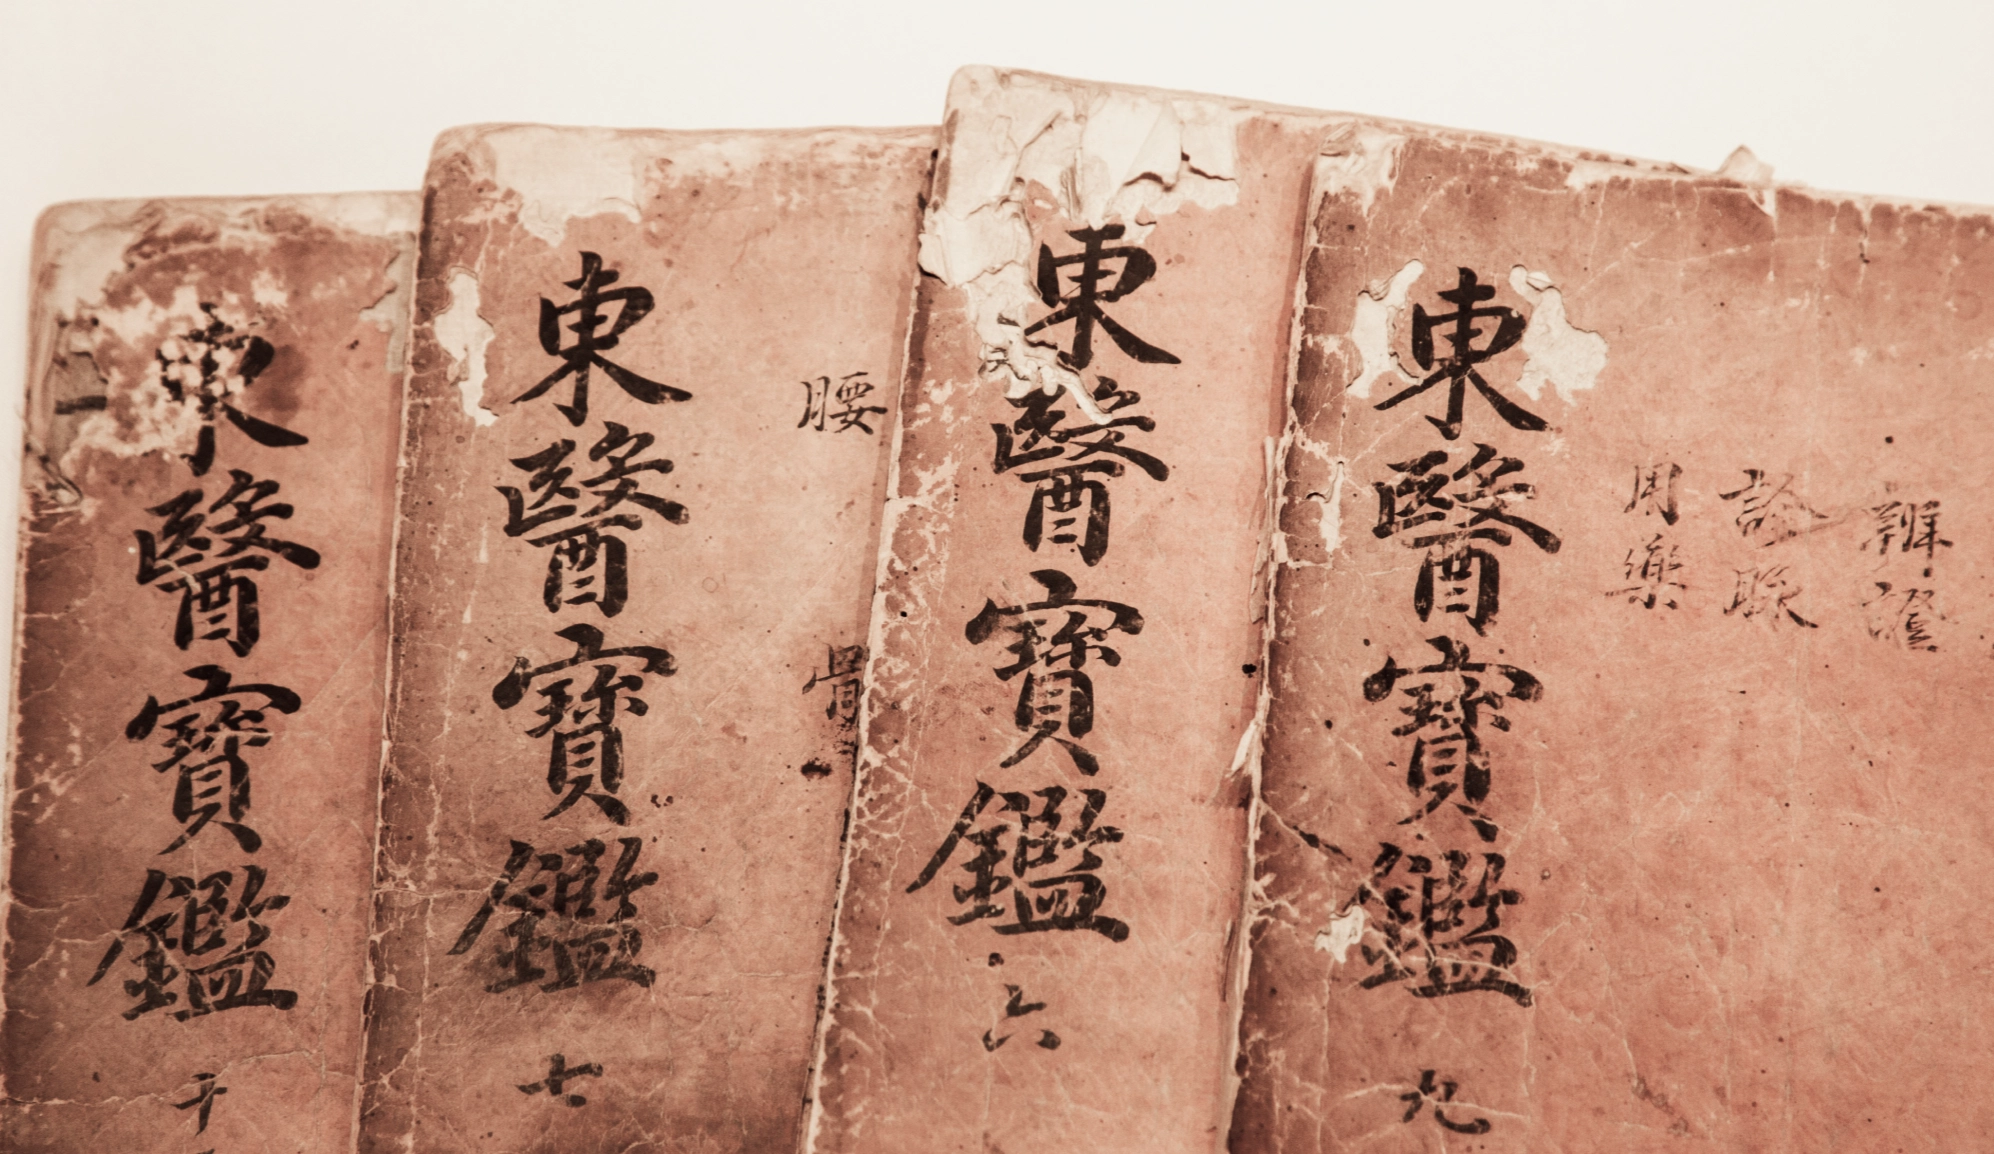 東醫寶鑑 九
用藥
診脈
辨證
東醫寶鑑 六
東醫寶鑑 七
腰
東醫寶鑑